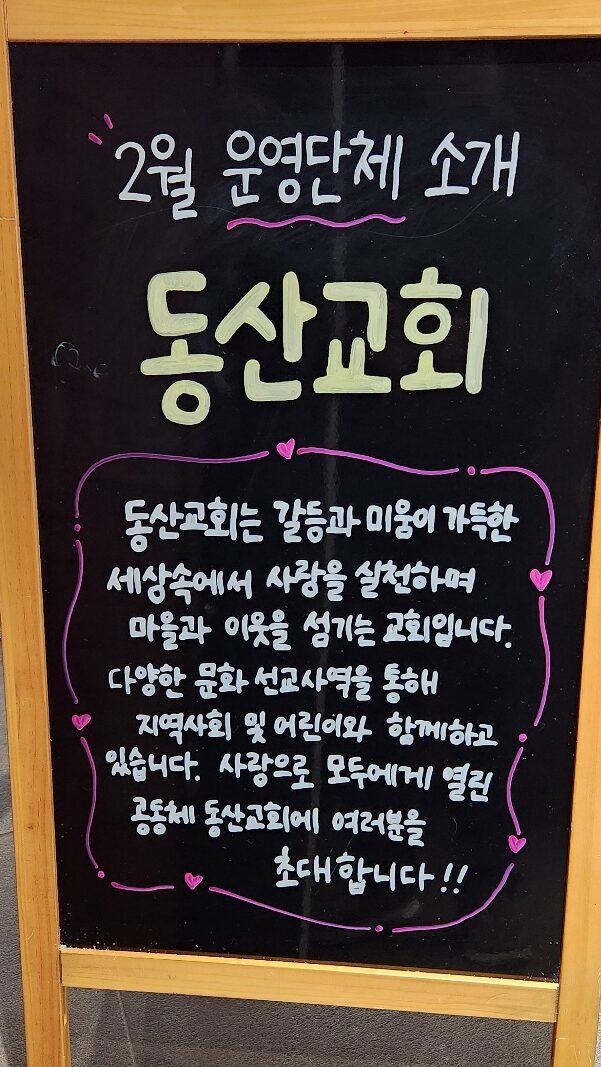 2월 운영단체 소개
동산교회
동산교회는 갈등과 미움이 가득한
세상속에서 사랑을 실천하며
마을과 이웃을 섬기는 교회입니다.
다양한 문화 선교사역을 통해
지역사회 및 어린이와 함께하고
있습니다. 사랑으로 모두에게 열린
공동체 동산교회에 여러분을
초대합니다!!